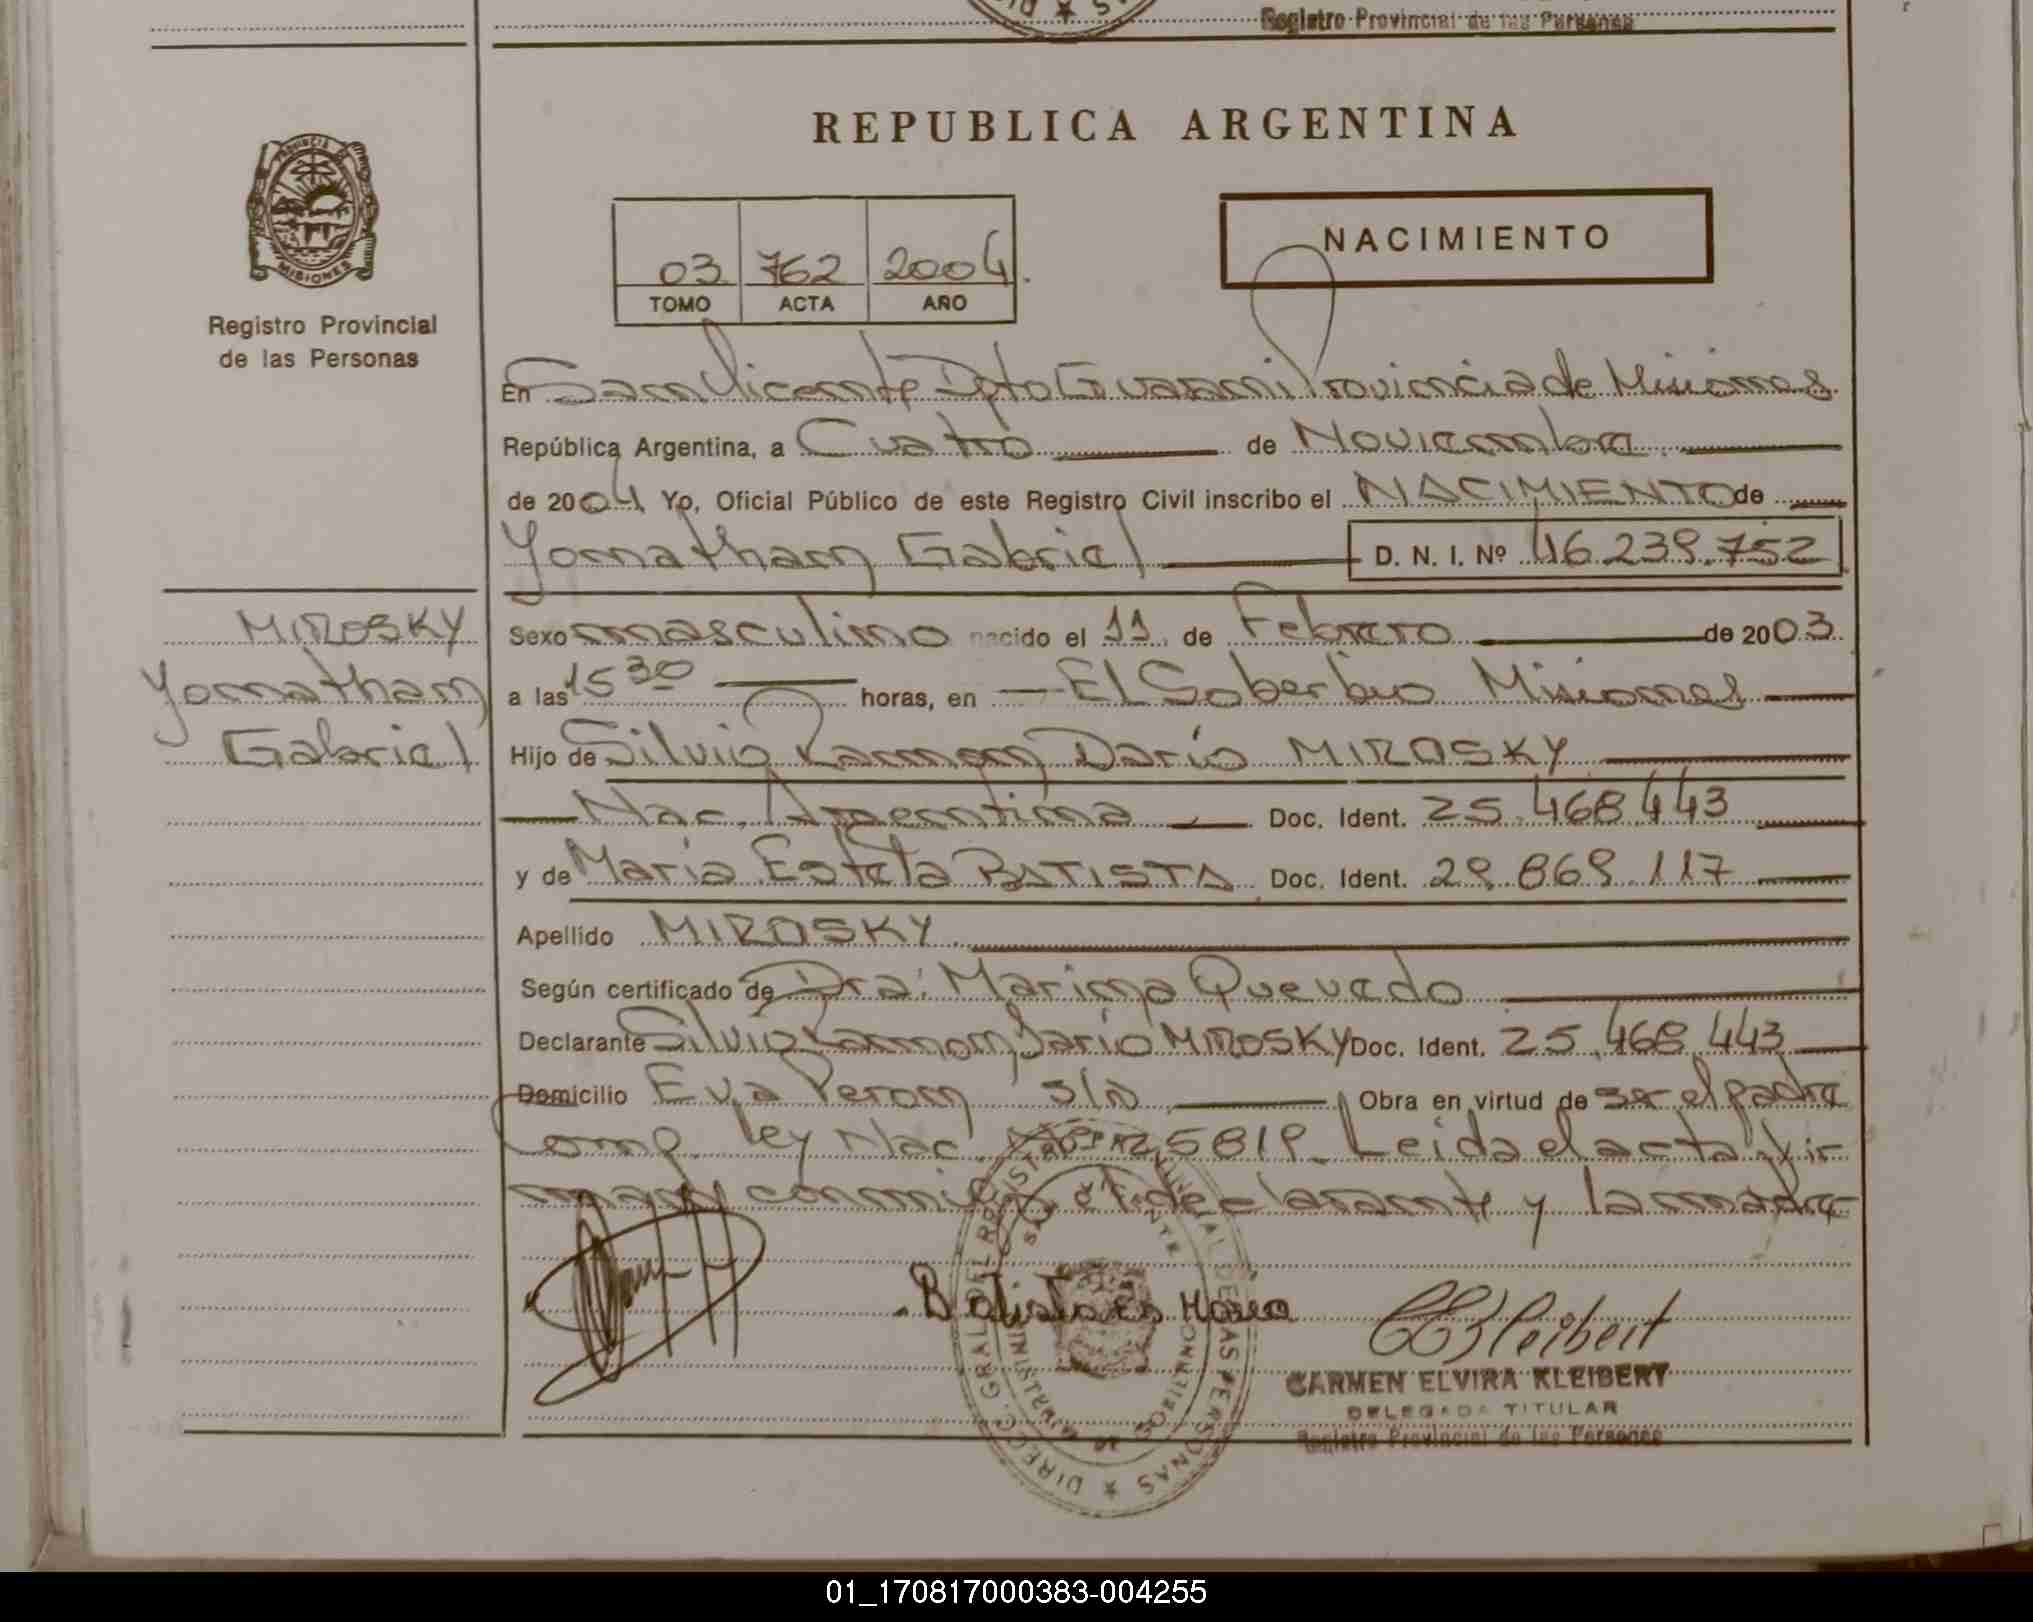 Registro Provincial de las Personas
REPUBLICA ARGENTINA
PROVINCIA DE
MISIONES
Registro Provincial
de las Personas
03 762 2004
TOMO ACTA AÑO
NACIMIENTO
En San Vicente Dpto Guarani Provincia de Misiones
República Argentina, a Cuatro de Noviembre
de 2004 Yo, Oficial Público de este Registro Civil inscribo el NACIMIENTO de
Yonathan Gabriel D. N. I. Nº 46.239.752
MIROSKY
Yonathan
Gabriel
Sexo masculino nacido el 11 de Febrero de 2003
a las 15 30 horas, en El Soberbio Misiones
Hijo de Silvio Ramon Darío MIROSKY
Nac. Argentina Doc. Ident. 25.468.443
y de María Estela BATISTA Doc. Ident. 29.869.117
Apellido MIROSKY
Según certificado de Dra: Marina Quevedo
Declarante Silvio Ramon Darío MIROSKY Doc. Ident. 25.468.443
Domicilio Eva Peron S/N Obra en virtud de ser el padre
Comp. ley Nac. Nº 25819. Leida el acta fir
man conmigo el declarante y la madre
Batista Es Maria
CEKleibert
CARMEN ELVIRA KLEIBERT
DELEGADA TITULAR
Registro Provincial de las Personas
DIRECC. GRAL. DEL REGISTRO PROVINCIAL DE LAS PERSONAS
SAN VICENTE
MINISTERIO DE GOBIERNO
01_170817000383-004255